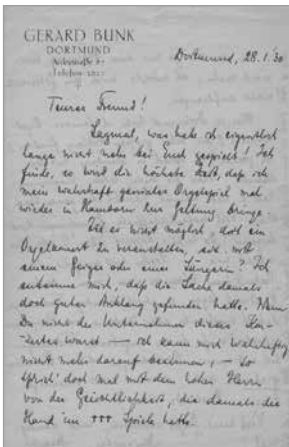 GERARD BUNK
DORTMUND
Dortmund, 28.1.30
Teurer Freund!
Sagmal, was habe ich eigentlich
lange nicht mehr bei Euch gespielt! Ich
finde, es wird die höchste Zeit, daß ich
mein wahrhaft geniales Orgelspiel mal
wieder in Hamborn zur Geltung bringe.
Ist es nicht möglich, dort ein
Orgelkonzert zu veranstalten, evt. mit
einem Geiger oder einer Sängerin? Ich
entsinne mich, daß die Sache damals
doch guten Anklang gefunden hatte. Wenn
Du nicht der Unternehmer dieses Kon-
zertes warst — ich kann mich wahrhaftig
nicht mehr darauf besinnen, — so
sprich' doch mal mit dem hohen Herrn
von der Geistlichkeit, die damals die
Hand im +++ Spiele hatte.